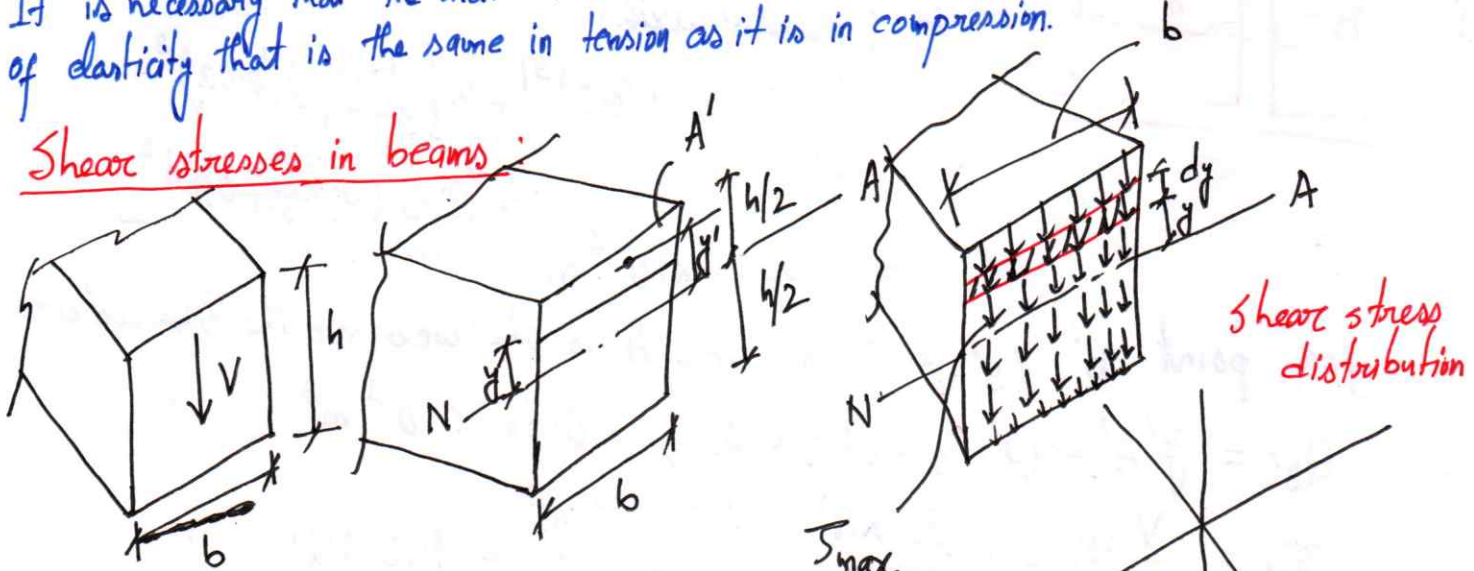 It is necessary that
of elasticity that is the same in tension as it is in compression.
Shear stresses in beams :
V
h
b
A'
y'
h/2
h/2
A
y
N
b
b
dy
y
A
N
τmax
Shear stress
distribution